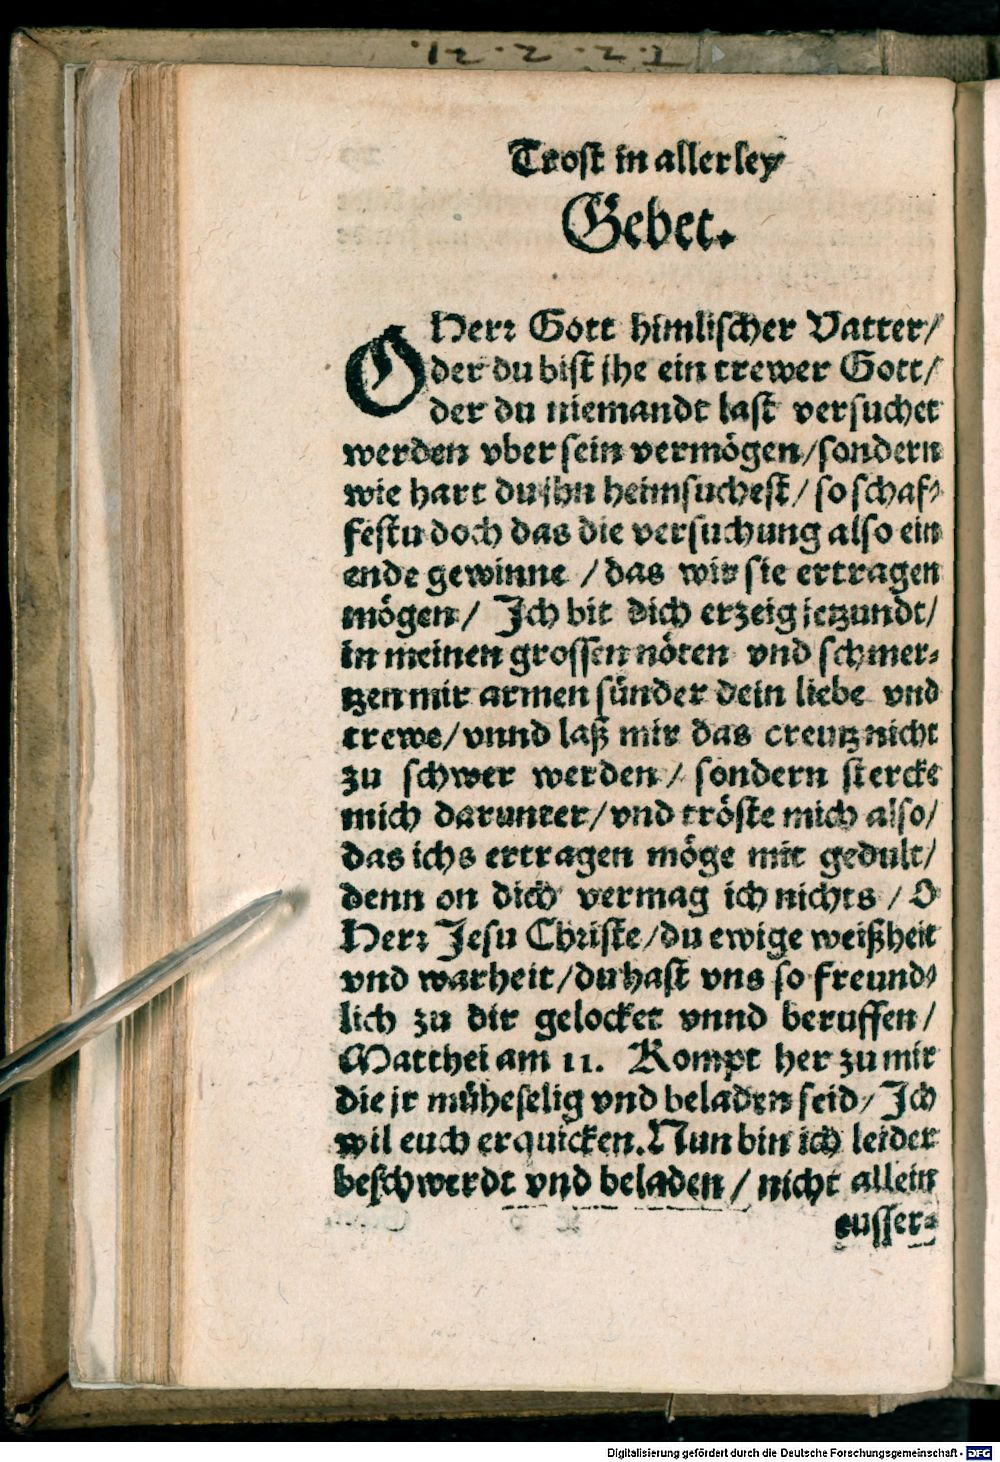 Trost in allerley
Gebet.
O Herr Gott himlischer Vatter/
der du bist jhe ein trewer Gott/
der du niemandt last versuchet
werden vber sein vermögen/sondern
wie hart du jhn heimsuchest/ so schaf-
festu doch das die versuchung also ein
ende gewinne /das wir sie ertragen
mögen/ Ich bit dich erzeig jetzundt/
in meinen grossen nöten vnd schmer-
tzen mir armen sünder dein liebe vnd
trewe/vnnd laß mir das creutz nicht
zu schwer werden/ sondern stercke
mich darunter/vnd tröste mich also/
das ichs ertragen möge mit gedult/
denn on dich vermag ich nichts /O
Herr Jesu Christe/du ewige weißheit
vnd warheit/du hast vns so freund-
lich zu dir gelocket vnnd beruffen/
Matthei am 11. Kompt her zu mir
die jr müheselig vnd beladen seid/Ich
wil euch erquicken.Nun bin ich leider
beschwerdt vnd beladen/nicht allein
eusser-
Digitalisierung gefördert durch die Deutsche Forschungsgemeinschaft - DFG